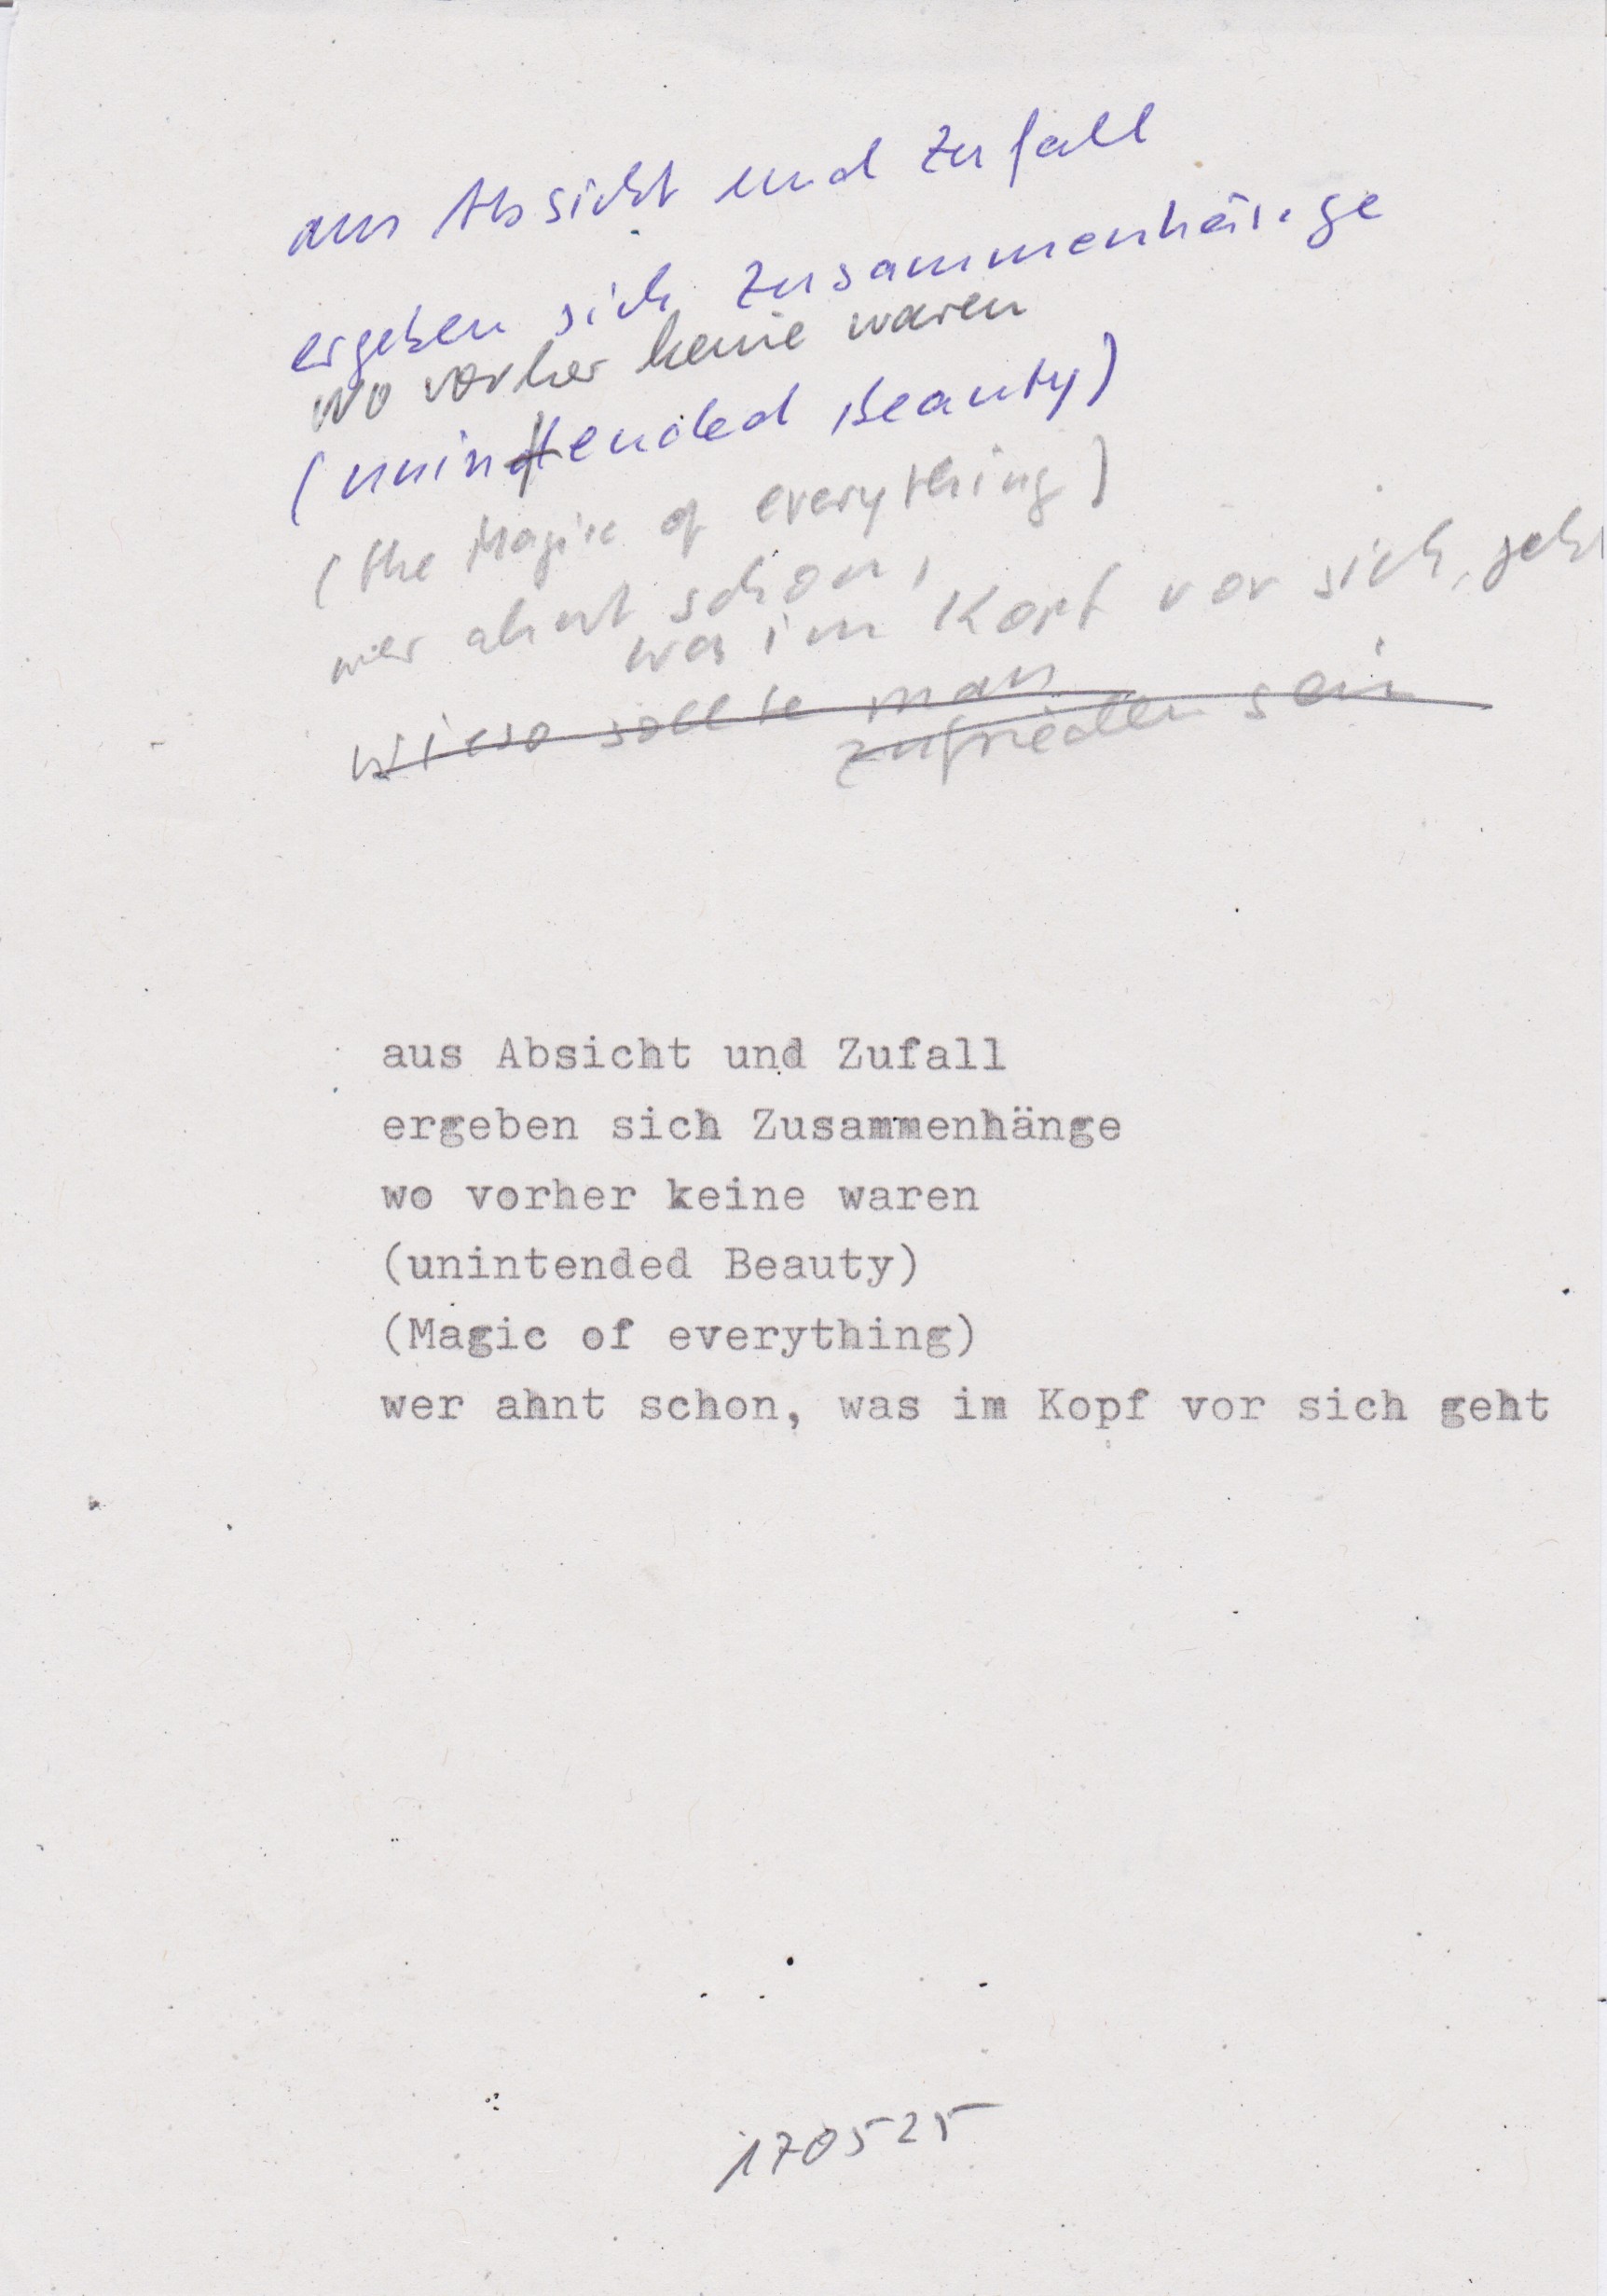 aus Absicht und Zufall
ergeben sich Zusammenhänge
wo vorher keine waren
(unintended Beauty)
(the Magic of everything)
wer ahnt schon,
was im Kopf vor sich geht
wieso sollte man
zufrieden sein
aus Absicht und Zufall
ergeben sich Zusammenhänge
wo vorher keine waren
(unintended Beauty)
(Magic of everything)
wer ahnt schon, was im Kopf vor sich geht
170525